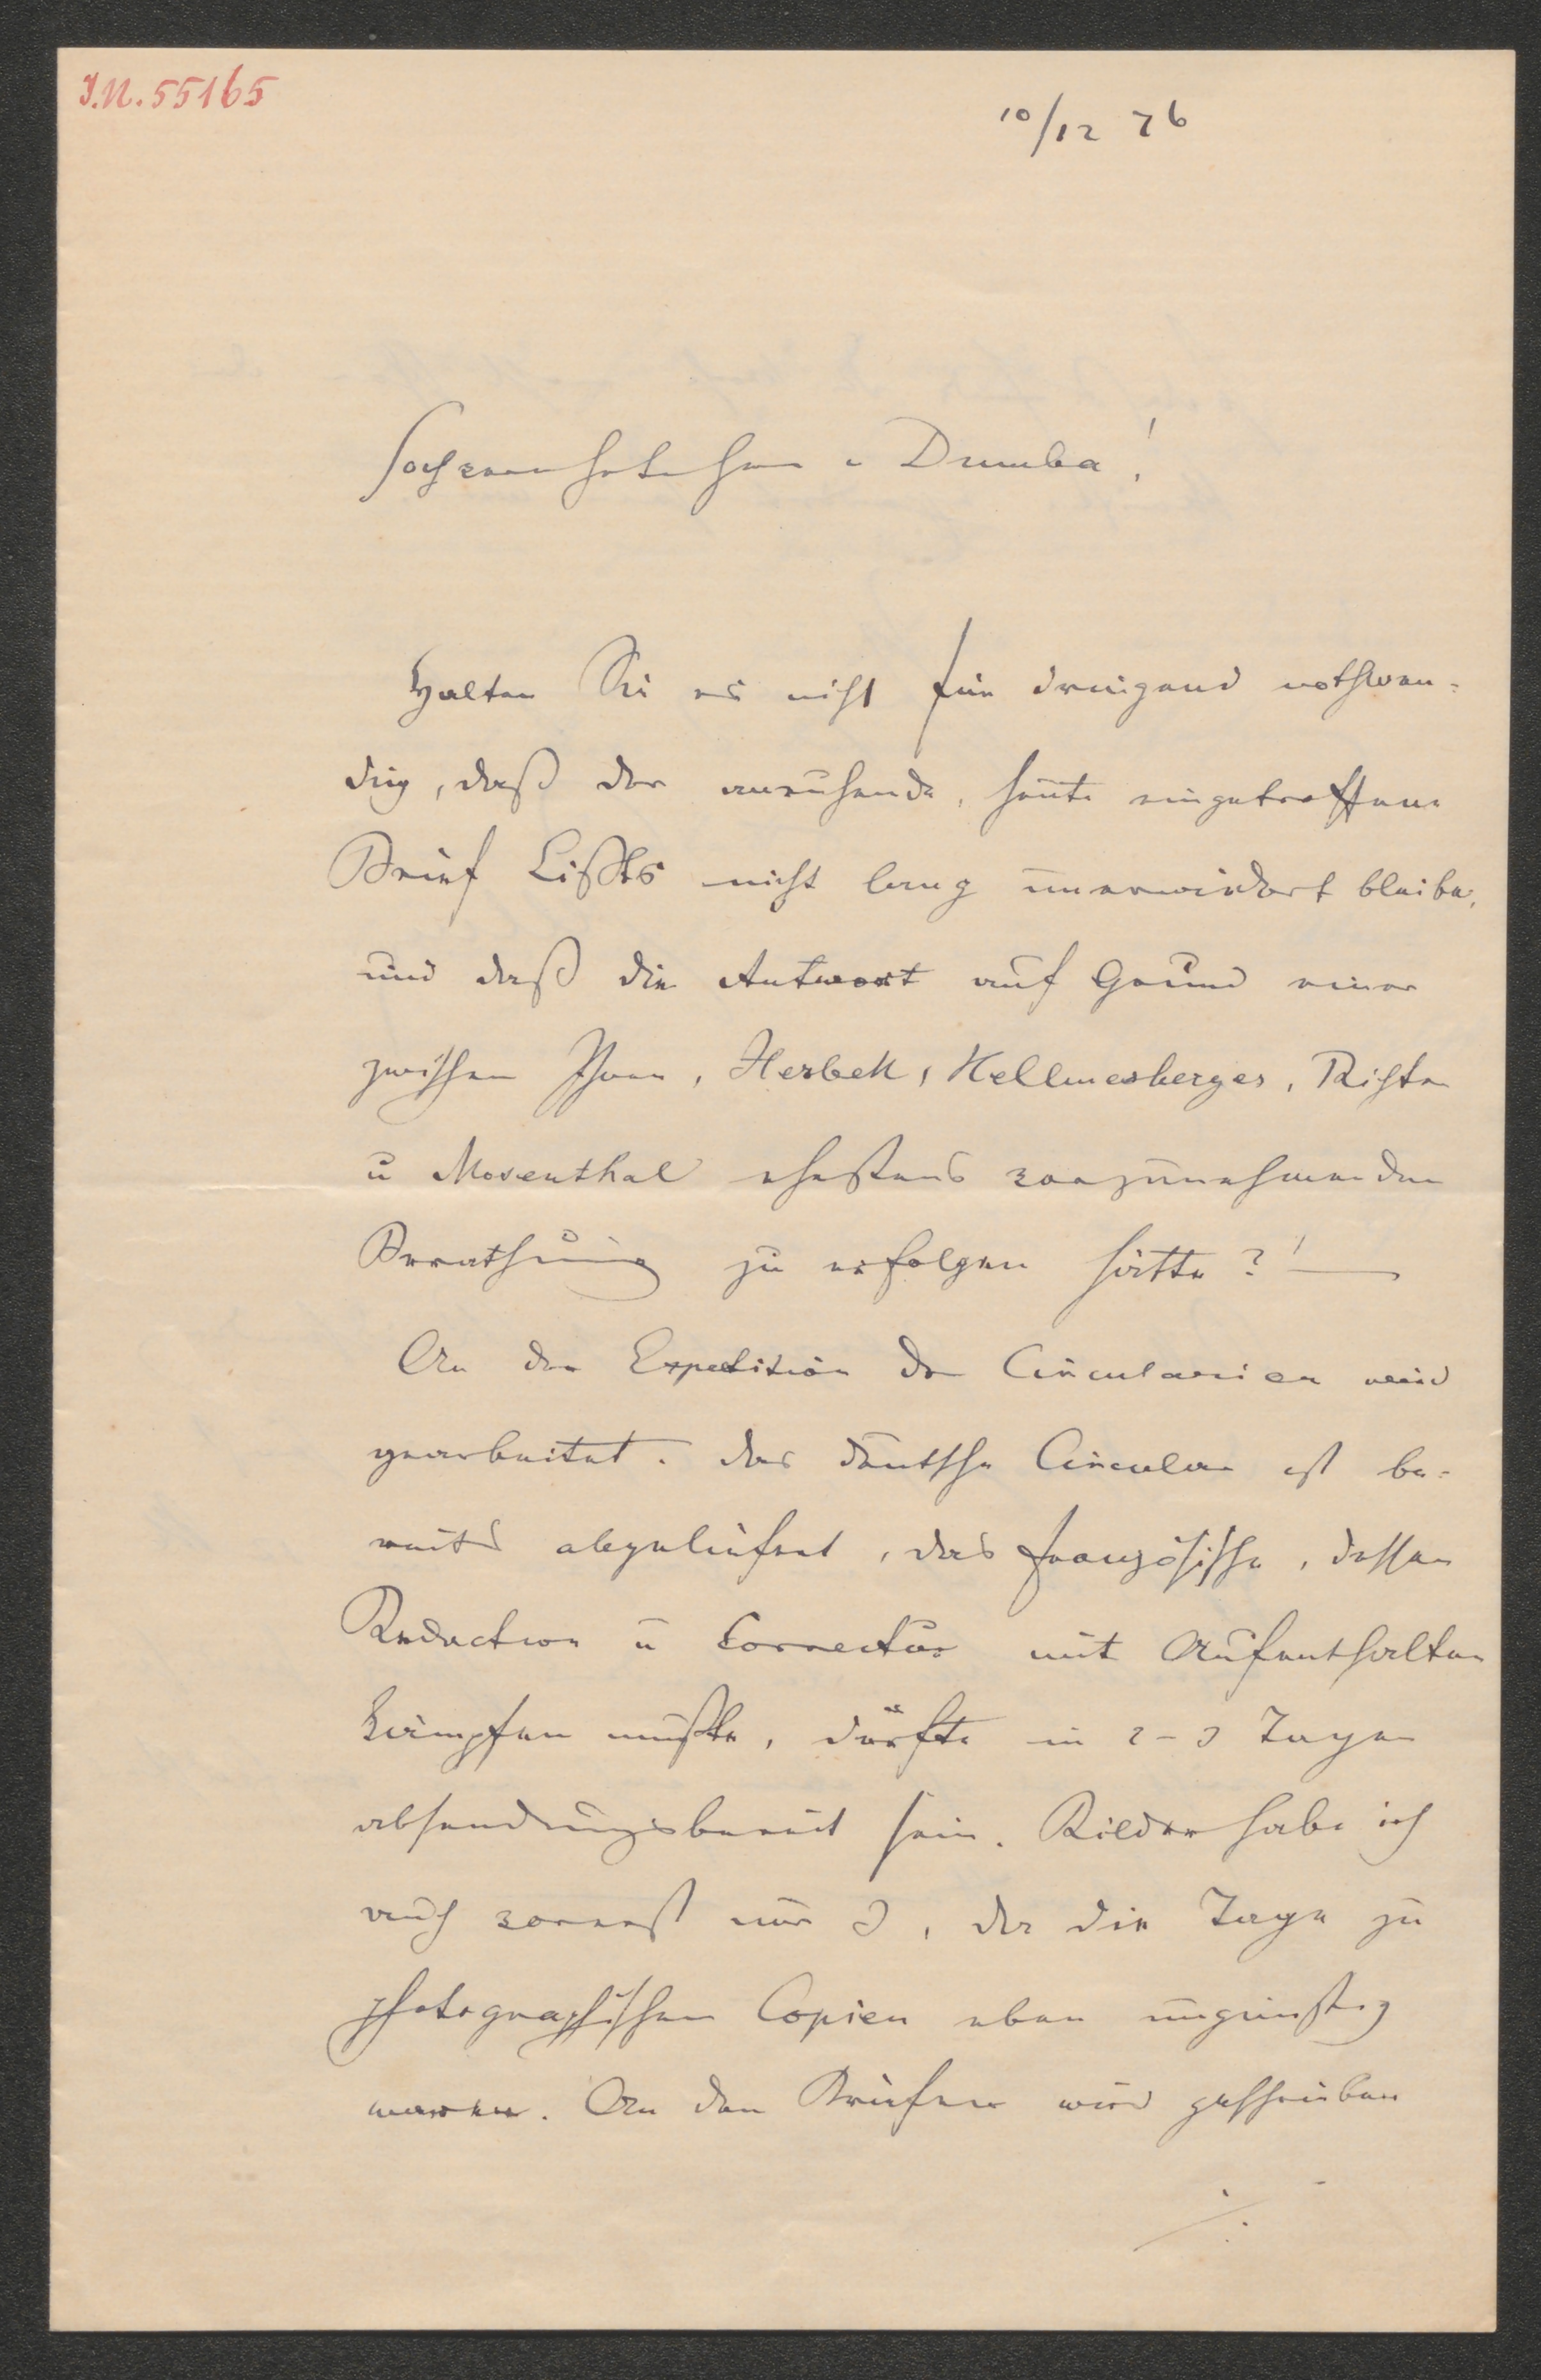 J.N. 55165
10/12 76
Hochverehrter Herr v Dumba!
Halten Sie es nicht für dringend nothwen-
dig, daß der anruhende, heute eingetroffene
Brief Lißts nicht lang unerwiedert bleibe,
und daß die Antwort auf Grund einer
zwischen Ihnen, Herbek, Hellmesberger, Richter
u Mosenthal ehestens vorzunehmenden
Berathung zu erfolgen hätte?! —
An der Expedition der Circularien wird
gearbeitet. Das deutsche Circular ist be-
reits abgeliefert, das französische, dessen
Redaction u Correctur mit Aufenthalten
kämpfen mußte, dürfte in 2–3 Tagen
absendungsbereit sein. Bilder habe ich
auch vorerst nur 3, da die Tage zu
photographischen Copien eben ungünstig
waren. An den Briefen wird geschrieben
./.